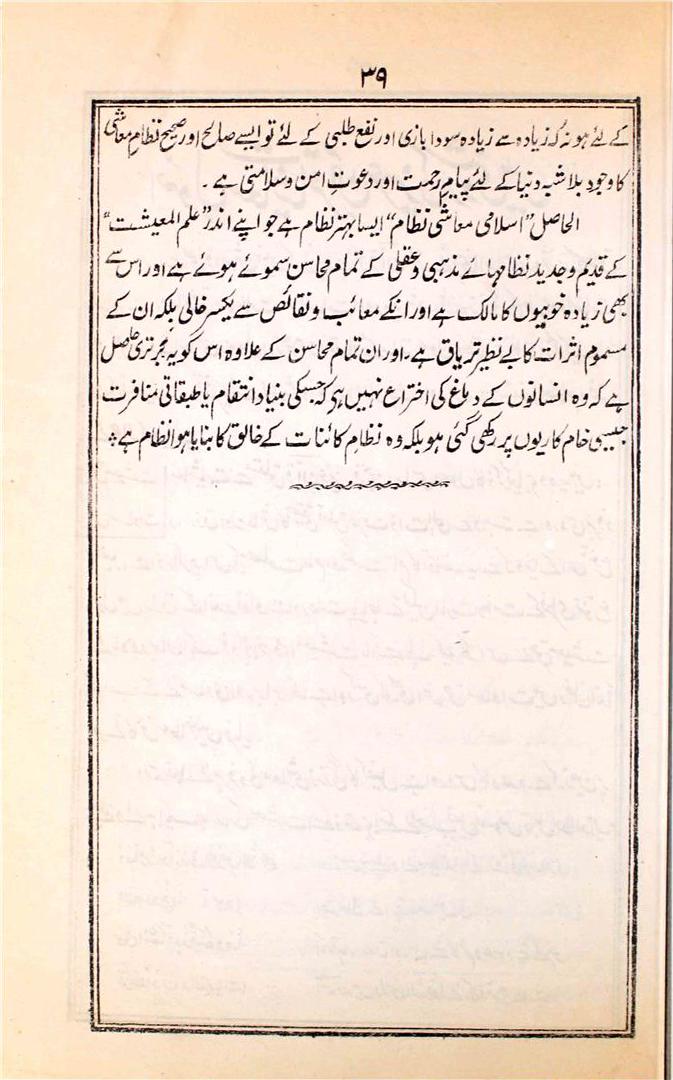 ۳۹
کے لئے ہو نہ کہ زیادہ سے زیادہ سودا بازی اور نفع طلبی کے لئے تو ایسے صالح اور صحیح نظامِ معاشی
کا وجود بلا شبہ دنیا کے لئے پیامِ رحمت اور دعوتِ امن و سلامتی ہے ۔
الحاصل "اسلامی معاشی نظام" ایسا بہتر نظام ہے جو اپنے اندر "علم المعیشت"
کے قدیم و جدید نظامہائے مذہبی و عقلی کے تمام محاسن سموئے ہوئے ہے اور اس سے
بھی زیادہ خوبیوں کا مالک ہے اور انکے معائب و نقائص سے یکسر خالی بلکہ ان کے
مسموم اثرات کا بے نظیر تریاق ہے، اور ان تمام محاسن کے علاوہ اس کو یہ برتری حاصل
ہے کہ وہ انسانوں کے دماغ کی اختراع نہیں ہی کہ جسکی بنیاد انتقام یا طبقاتی منافرت
جیسی خام کاریوں پر رکھی گئی ہو بلکہ وہ نظامِ کائنات کے خالق کا بنایا ہوا نظام ہے